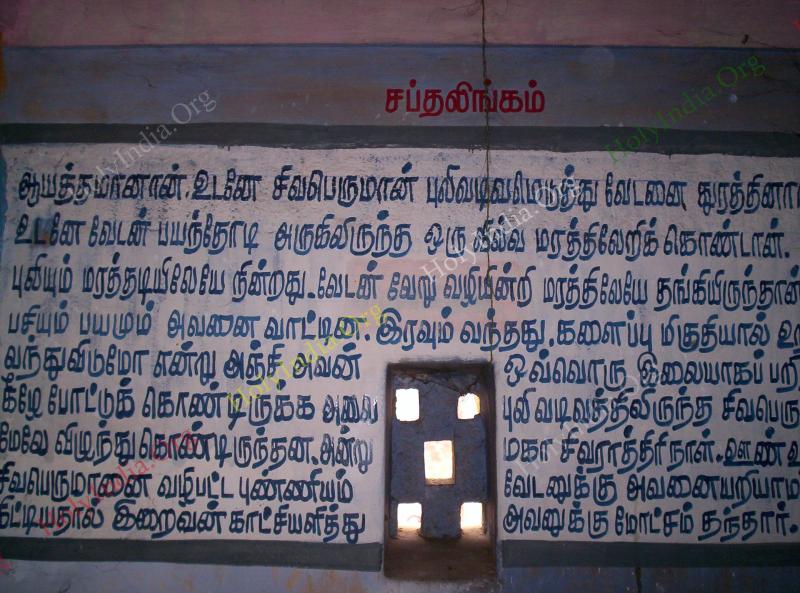 சப்தலிங்கம்
ஆயத்தமானான். உடனே சிவபெருமான் புலிவடிவமெடுத்து வேடனை துரத்தினா
உடனே வேடன் பயந்தோடி அருகிலிருந்த ஒரு வில்வ மரத்திலேறிக் கொண்டான்.
புலியும் மரத்தடியிலேயே நின்றது. வேடன் வேறு வழியின்றி மரத்திலேயே தங்கியிருந்தான்
பசியும் பயமும் அவனை வாட்டின. இரவும் வந்தது. களைப்பு மிகுதியால்
வந்துவிடுமோ என்று அஞ்சி அவன் ஒவ்வொரு இலையாகப் பறி
கீழே போட்டுக் கொண்டிருக்க அவை புலிவடிவத்திலிருந்த சிவபெரு
மேலே விழுந்து கொண்டிருந்தன. அன்று மகா சிவராத்திரி நாள். ஊண்
சிவபெருமானை வழிபட்ட புண்ணியம் வேடனுக்கு அவனையறியாம
கிட்டியதால் இறைவன் காட்சியளித்து அவனுக்கு மோட்சம் தந்தார்.
HolyIndia.Org
HolyIndia.Org
HolyIndia.Org
HolyIndia.Org
HolyIndia.Org
HolyIndia.Org